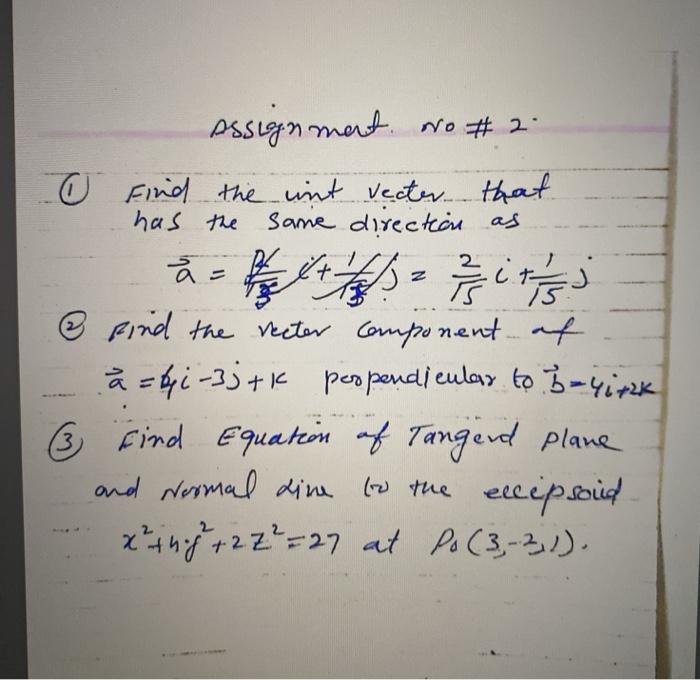 Assignment. No # 2.
① Find the uint vector that
has the same direction as
a⃗ = = 2/√5 i + 1/√5 j
② Find the vector component of
a⃗ = 4i -3j + k perpendicular to b⃗ = 4i+2k
③ Find Equation of Tangend plane
and Normal line to the eccepsoid
x²+4y²+2z²=27 at P₀(3,-2,1).